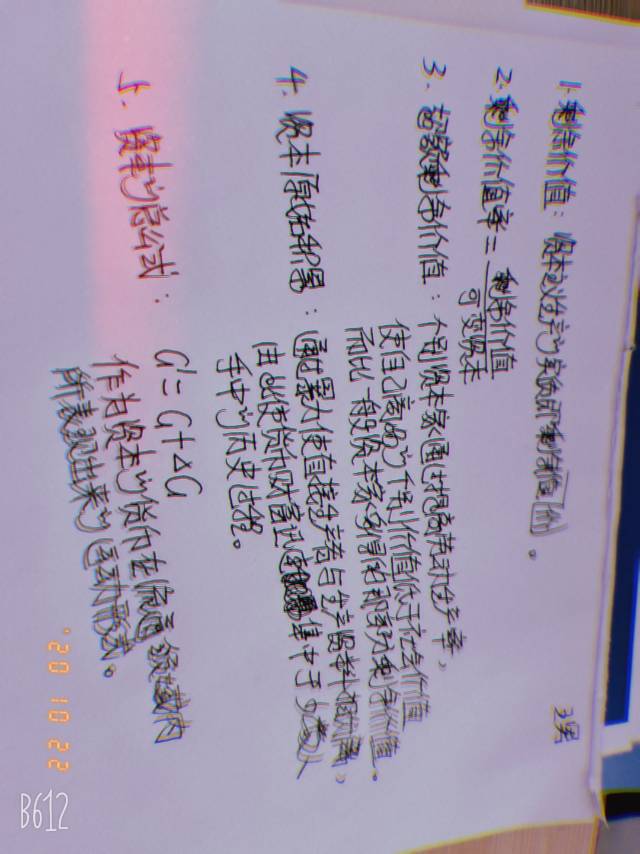 1. 剩余价值：资本主义生产的实质即剩余价值
2. 剩余价值率 = 剩余价值
可变资本
3. 超额剩余价值：个别资本家通过提高劳动生产率，
使自己商品的个别价值低于社会价值
而比一般资本家多得的那部分剩余价值。
4. 资本原始积累：通过暴力使直接生产者与生产资料相分离，
由此使货币财富迅速集中于少数人
手中的历史过程。
5. 资本的总公式：
G' = G + △G
作为资本的货币在流通领域内
所表现出来的运动形式。
'20 10 22
B612